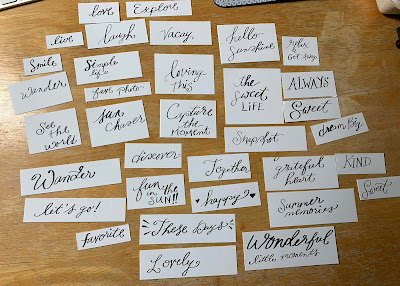 love
Explore
live
laugh
Vacay
hello
Sunshine
relax
& Get Away
Smile
Simple
life
loving
This
Wander
fav photo
the
Sweet
LIFE
ALWAYS
Sweet
See the
world
Sun
Chaser
Capture
the
MOMENT
Snapshot
dream Big
discover
Together
grateful
heart
KIND
Wander
fun
in the
SUN!!
happy?
Sweet
let's go!
Summer
memories
favorite
These Days
Wonderful
little moments
Lovely